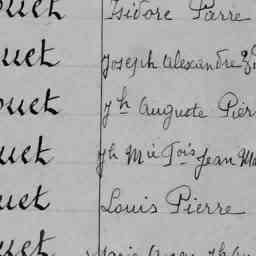 ouet Isidore Parre
ouet Joseph Alexandre
ouet Jh Auguste Pier
uet Jh Mie Fois Jean Ma
uet Louis Pierre
uet Marie